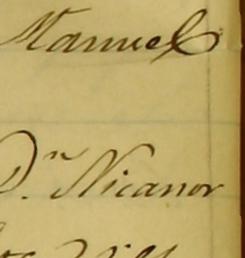 Manuel
Dn. Nicanor